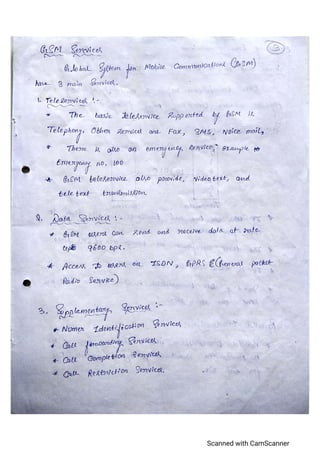 GSM Services
Global System for Mobile Communications (GSM)
Are 3 main Services.
1. Teleservices :-
* The basic teleservice supported by GSM is
Telephony. Other services are Fax, SMS, Voice mail,
* There is also an emergency service, Example
Emergency no. 100
* GSM teleservice also provide, Videotext, and
teletext transmission.
2. Data Services :-
* GSM users can send and receive data at rate
upto 9600 bps.
* Access to users on ISDN, GPRS (General packet
Radio Service)
3. Supplementary Services :-
* Number Identification Services
* Call forwarding Services
* Call Completion Services
* Call Restriction Services.
Scanned with CamScanner